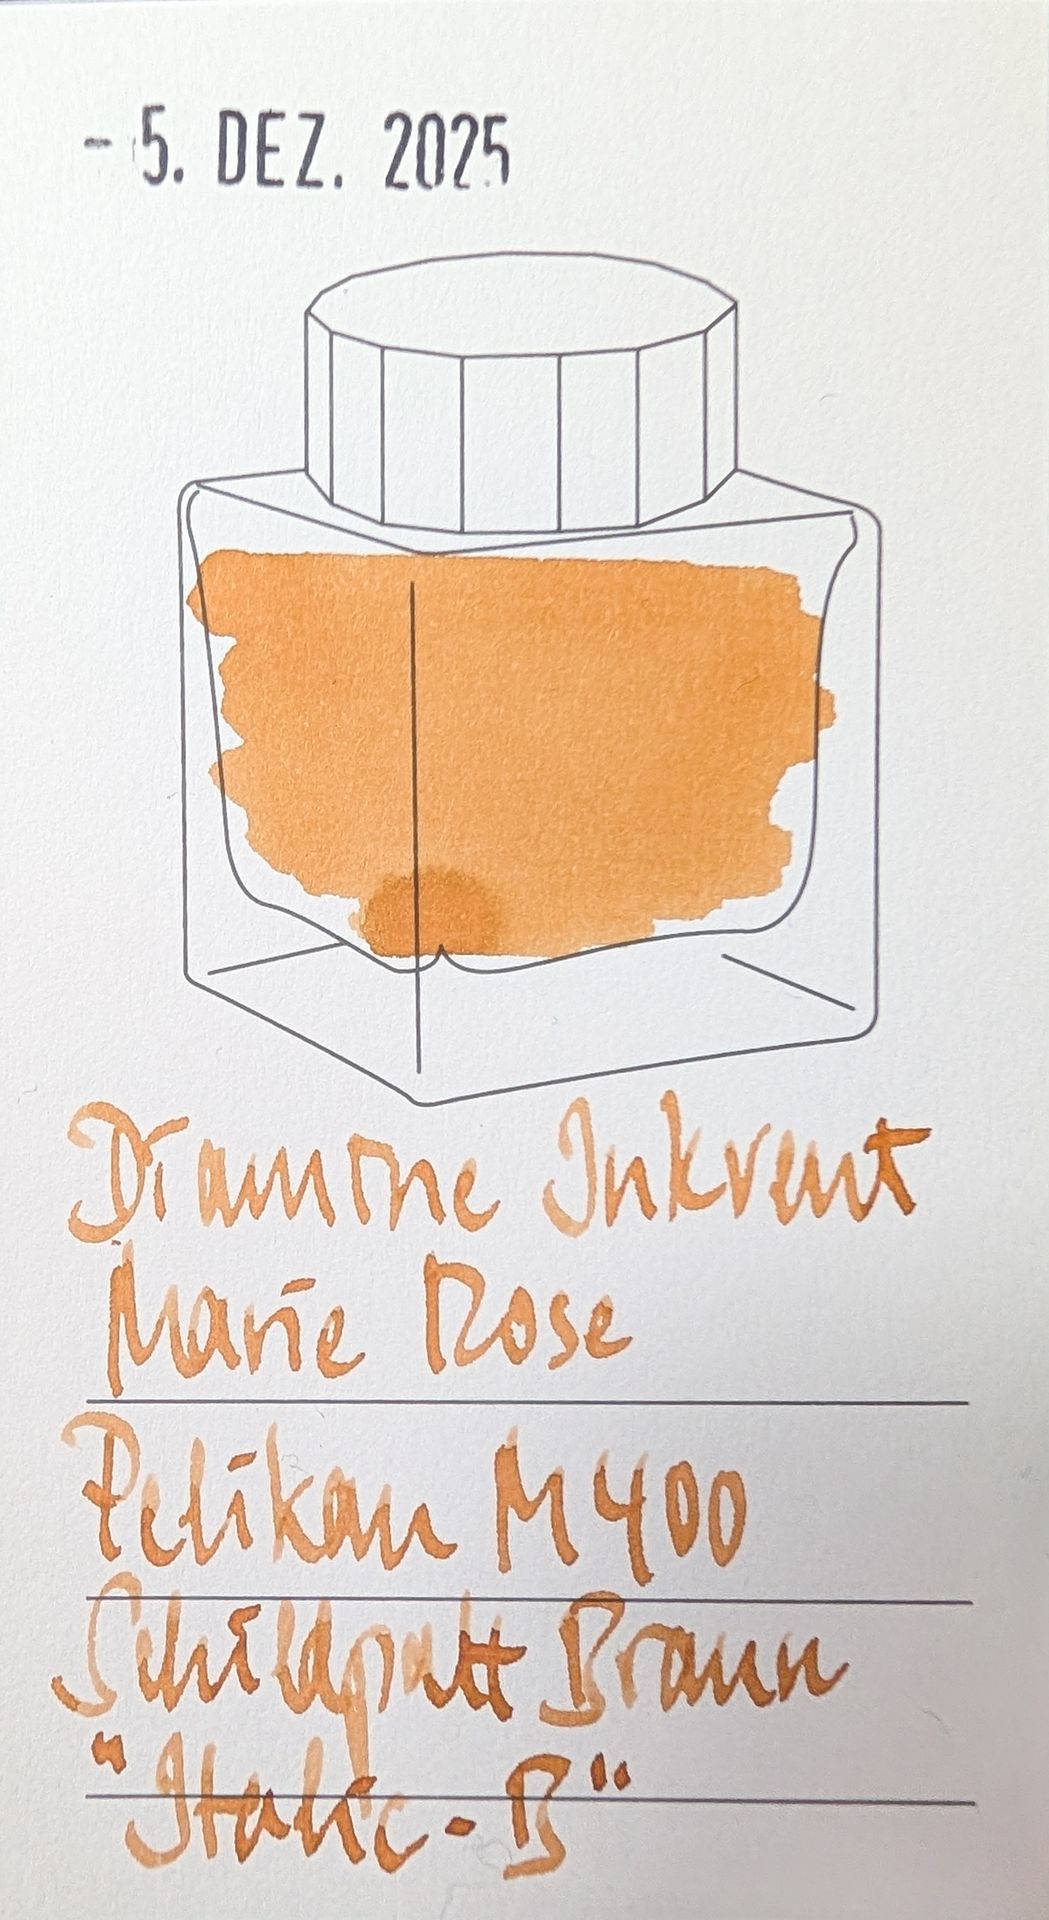 - 5. DEZ. 2025
Diamine Inkvent
Marie Rose
Pelikan M400
Schildpatt Braun
"Italic-B"